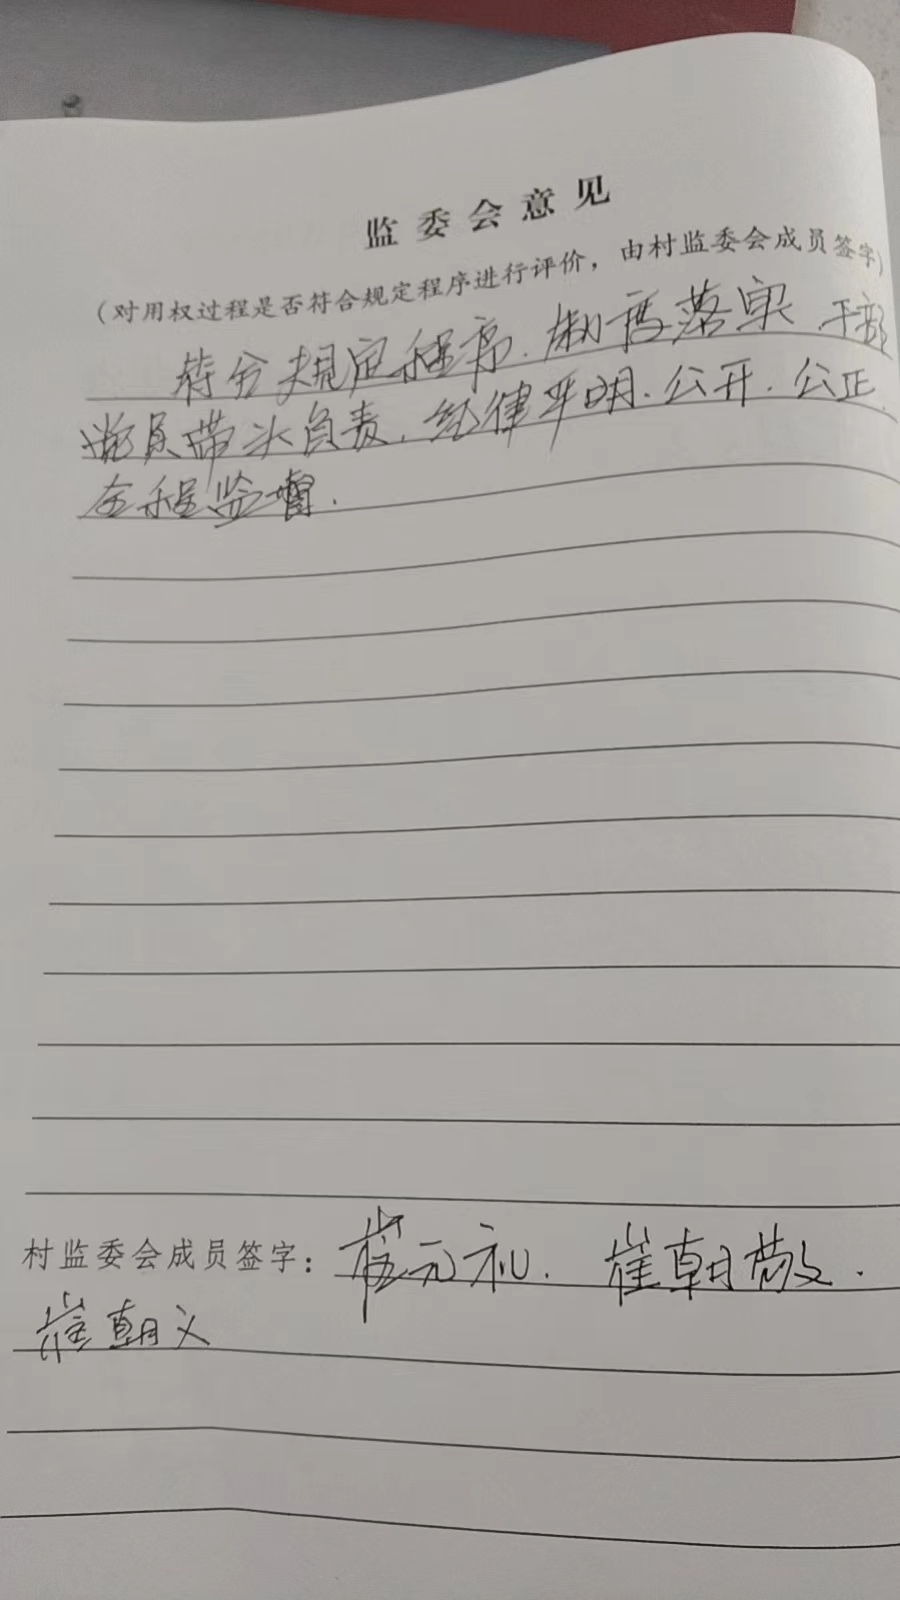 监委会意见
（对用权过程是否符合规定程序进行评价，由村监委会成员签字）
符合规定程序.制度落实.干部
党员带头负责.纪律严明.公开.公正.
全程监督.
村监委会成员签字：崔元礼.崔朝敬.
崔朝义